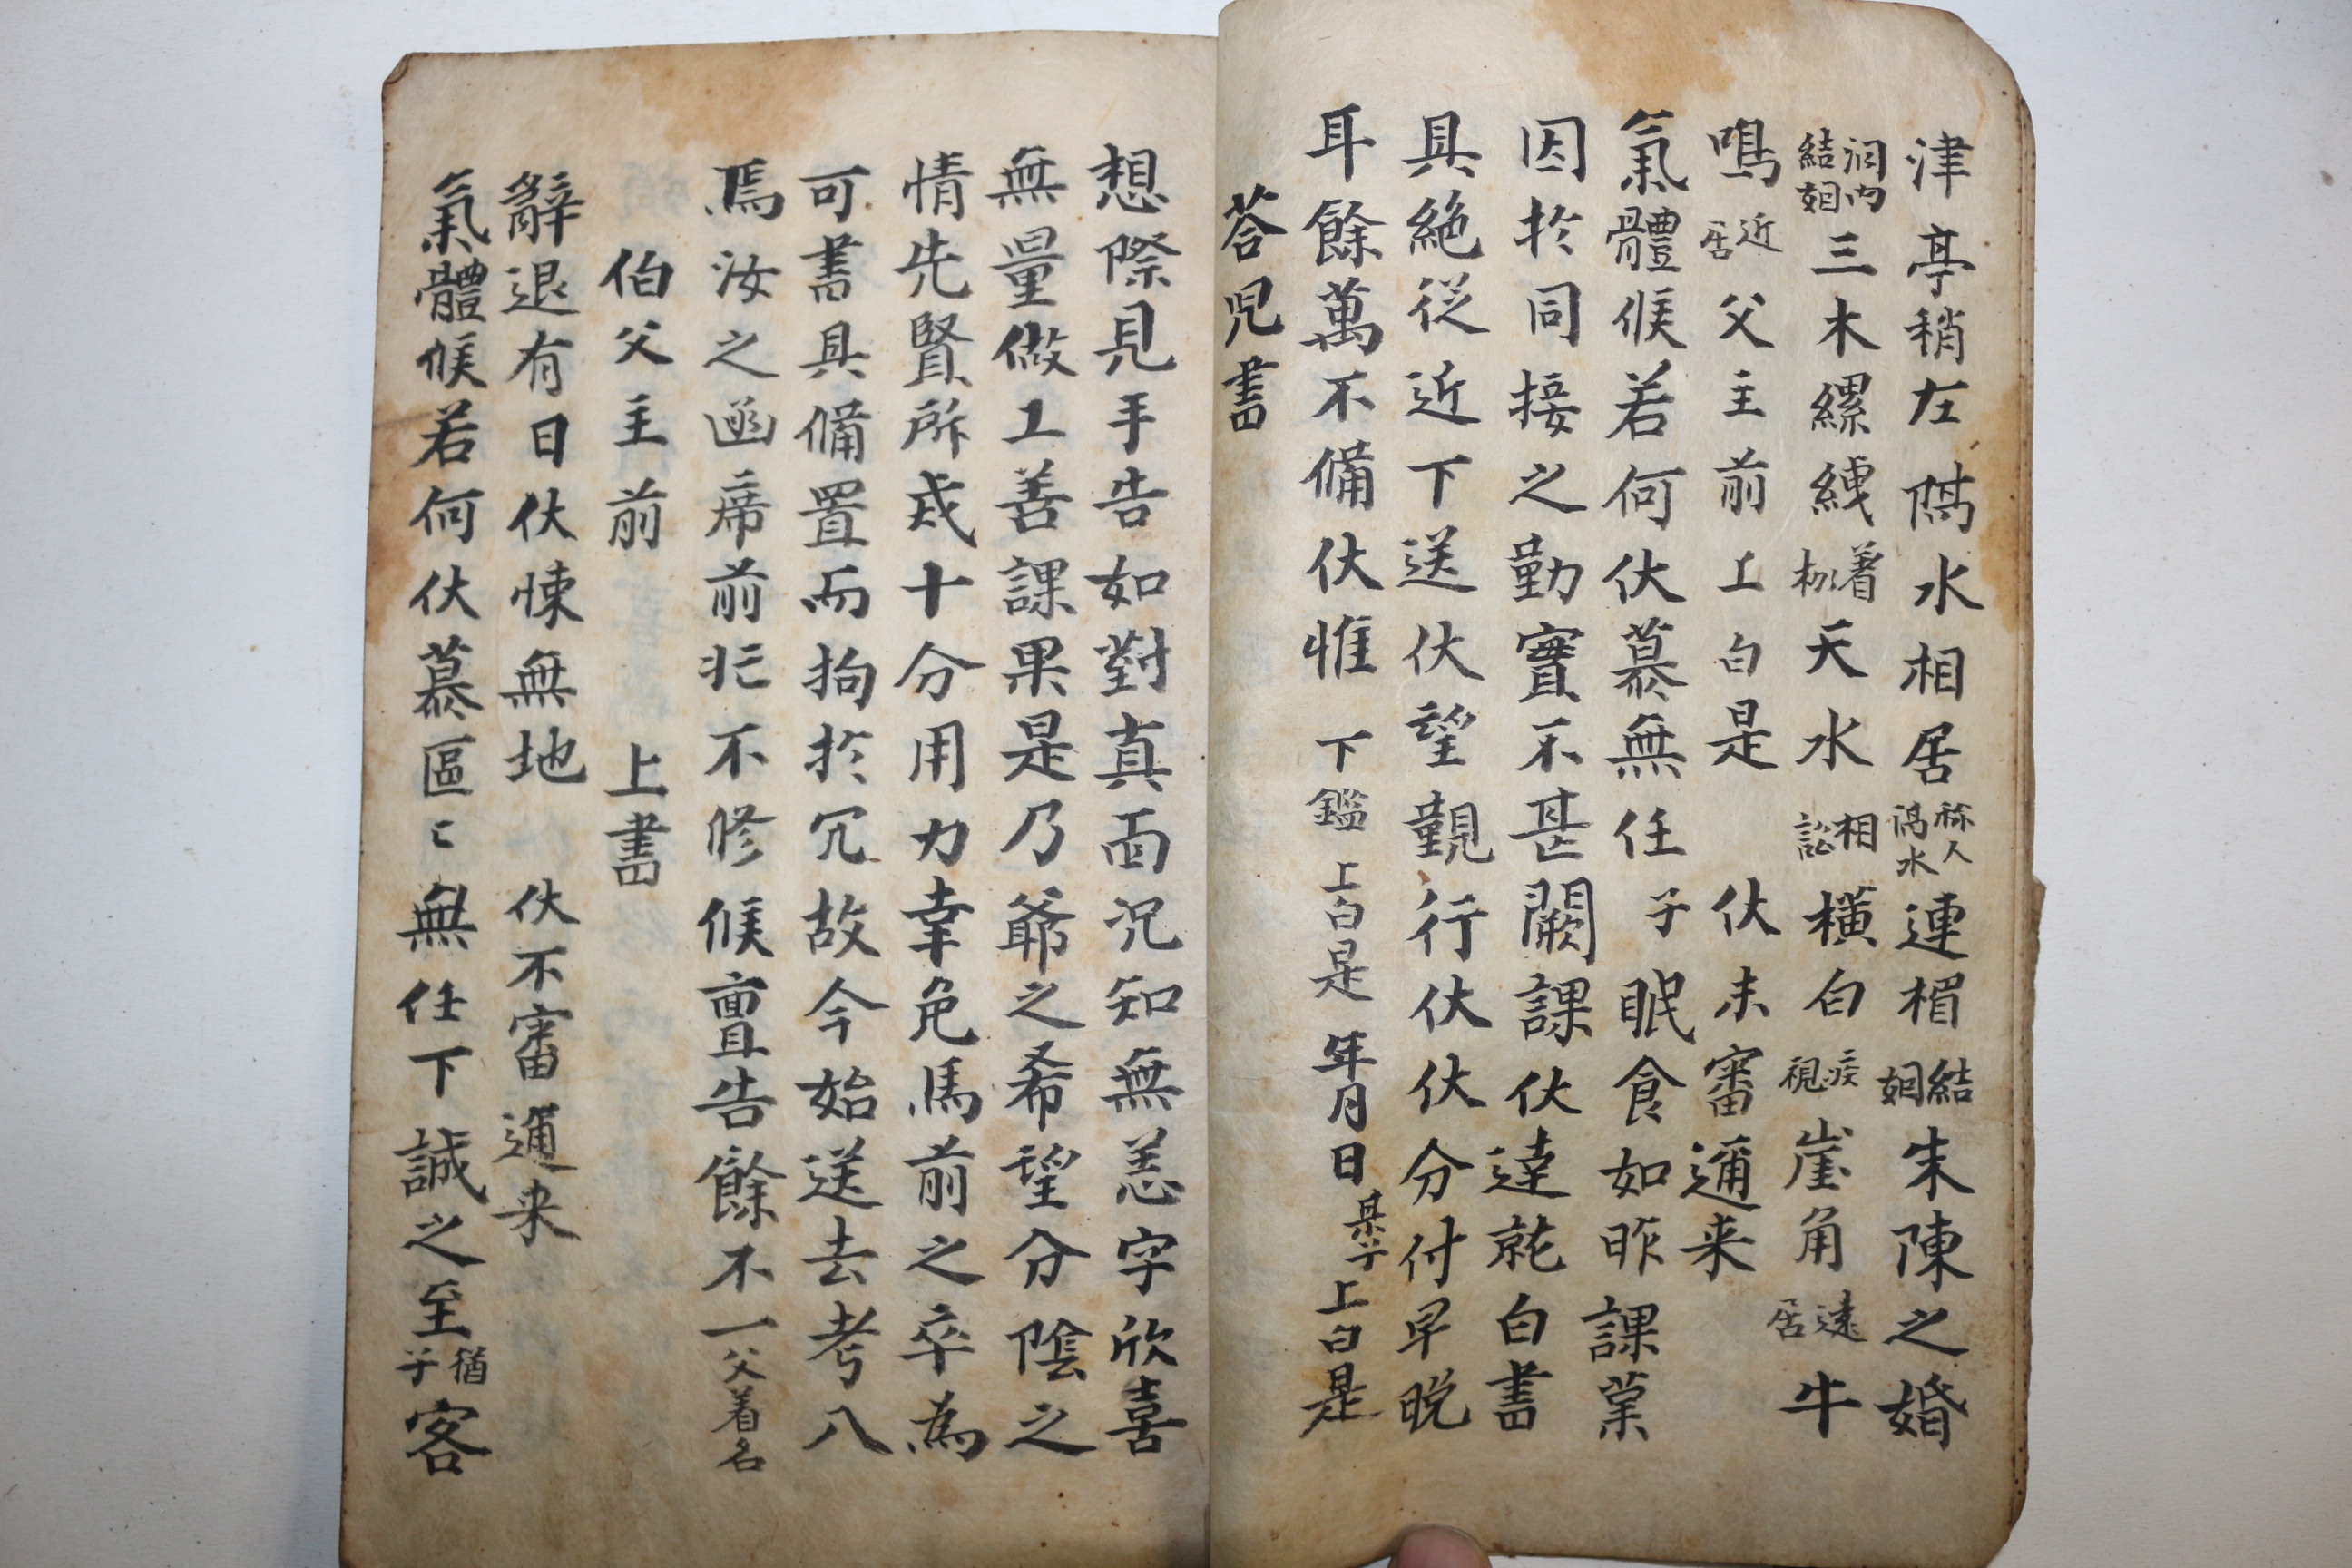 津亭稍左隔水相居称人渦水連楣結姻朱陳之婚
洞內結姻三木縲絏着枷天水相訟橫白疾視崖角遠居牛
鳴近居父主前上白是 伏未審邇来
氣體候若何伏慕無任子眠食如昨課業
因於同接之勤實不甚闕課伏達就白書
具絶從近下送伏望觀行伏伏分付早晩
耳餘萬不備伏惟 下鑑上白是 年月日某子上白是
荅児書
想際見手告如對真面況知無恙字欣喜
無量做工善課果是乃爺之希望分陰之
情先賢所戒十分用力幸免馬前之卒為
可書具備置而拘於冗故今始送去考八
焉汝之函席前姑不修候亶告餘不一父着名
伯父主前 上書
辭退有日伏悚無地 伏不審邇来
氣體候若何伏慕區〻無任下誠之至猶子客